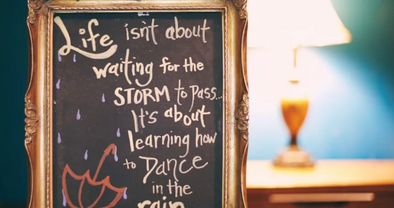 Life isn't about
waiting for the
STORM to pass...
It's about
learning how
to Dance
in the
rain